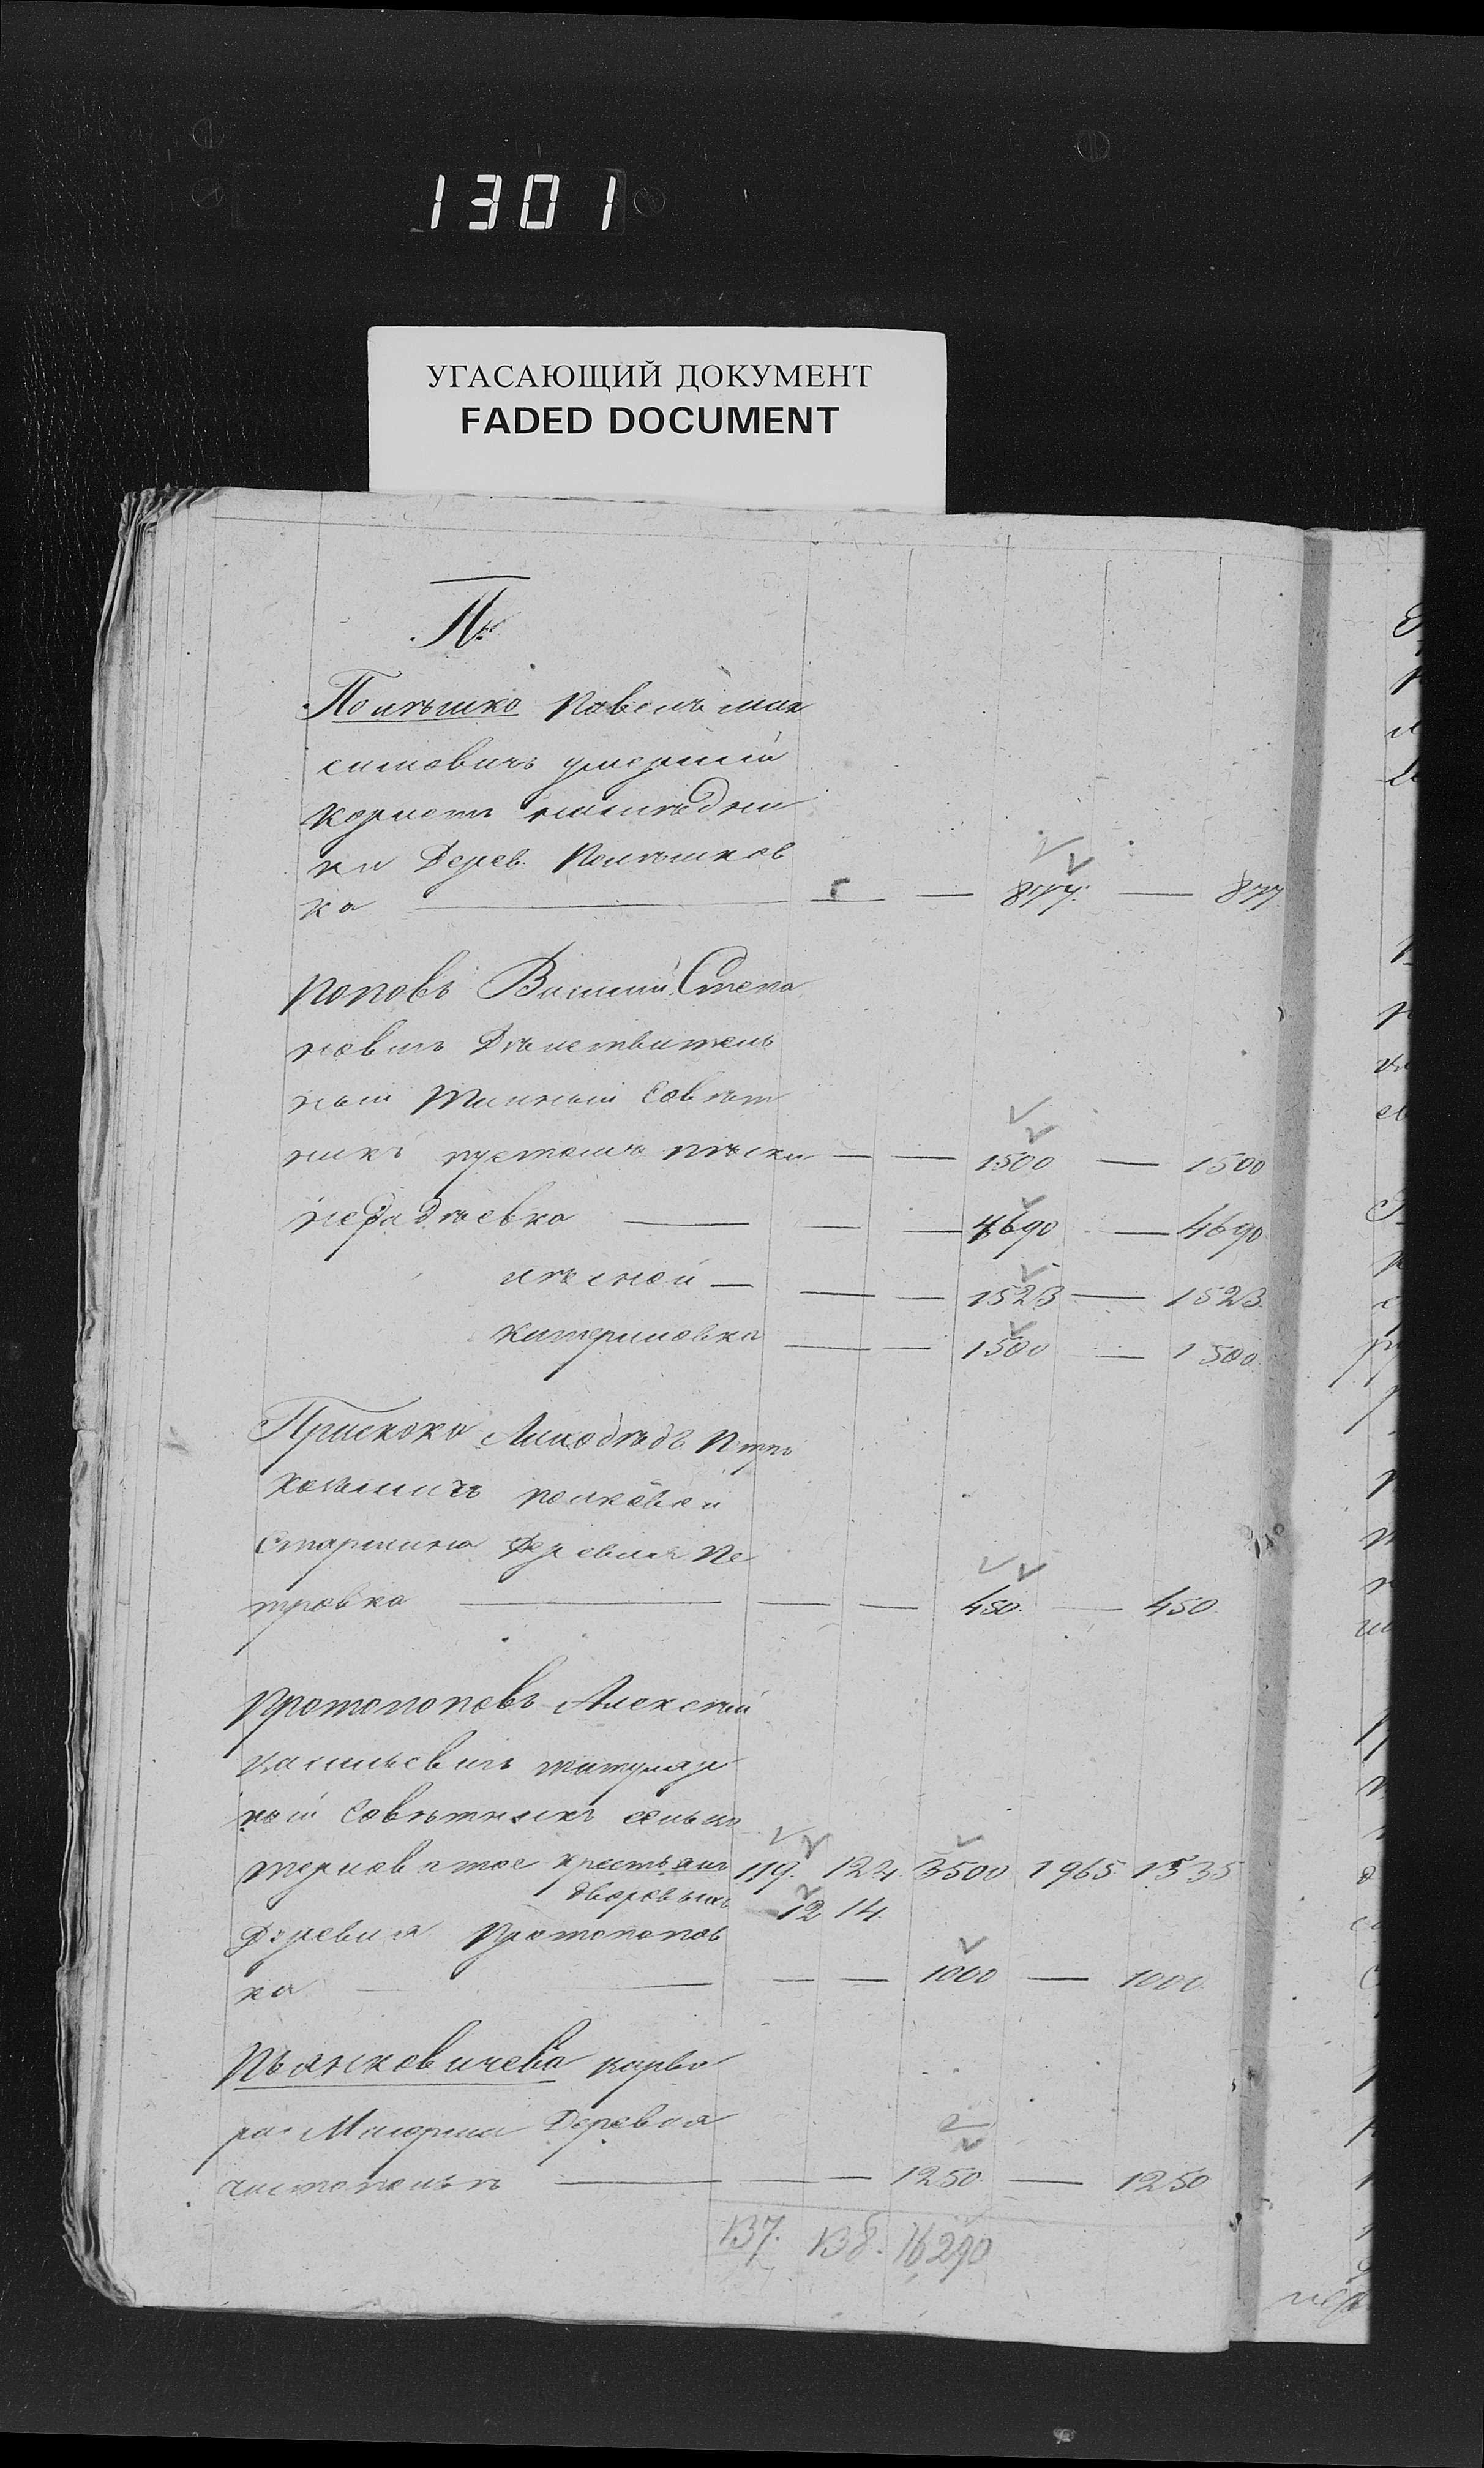 1301
УГАСАЮЩИЙ ДОКУМЕНТ
FADED DOCUMENT
П.
Полѣшко Павелъ Мак
симовичъ умершій
Корнетъ наслѣдни
ки Дерев. Полѣшков
ка — — — 877. — 877.
Поповъ Василій Степа
новичъ Дѣйствитель
ный Тайный Совѣт
никъ пустошь — — 1500 — 1500
— — — 4690 — 4690
лѣсной — — — 1523 — 1523.
Катериновка — — 1500 — 1500.
Петро
полковой
Старшина Деревня Пе
тровка — — — 450. — 450
Протопоповъ Алексѣй
Васильевичъ титуляр
ный Совѣтникъ сельцо
Терноватое крестьянъ 119. 124. 3500 1965 1535
дворовыхъ 12 14.
Деревня Протопопов
ка — — — 1000 — 1000.
Пьянковичева Варва
ра Маіорша Деревня
Чистополь — — — 1250. — 1250
137. 138. 16290